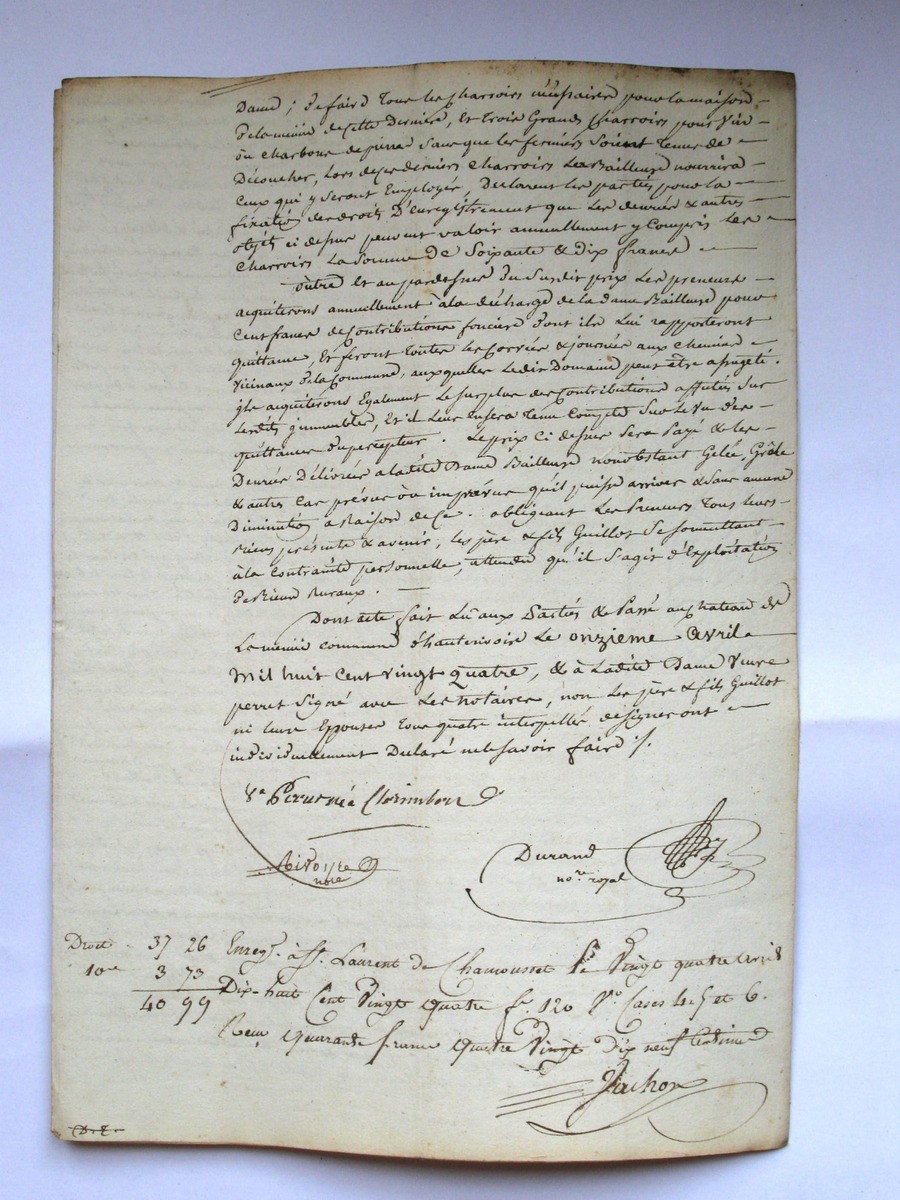 Dame ; de faire tous les charrois nécessaires pour la maison
de la menüe de cette derniere, et trois Grands charrois pour vin
ou charbons de pierre sans que les fermiers soient tenus de
Découcher, Lors de ces derniers charrois La Bailleuse nourrira
Ceux qui y seront Employés, Declarent les parties pour la
fixation des droits D'Enregistrement que les denrées & autres
objets ci dessus peuvent valoir annuellement y Compris Les
Charrois La Somme de Soixante & dix francs
outre et au pardessus du susdit prix Les preneurs
acquitterons annuellement à la décharge de la dame Bailleuse pour
Cent francs de Contributions foncieres dont ils Lui rapporteront
quittance, Et feront toutes les Corvées & journées aux chemins
Vicinaux de la Commune, auxquelles Ledit Domaine peut être assugeti.
ils acquitterons Egalement Le surplus des Contributions affectés Sur
Lesdits immeubles, Et il Leur en sera tenu Compte Sur Le Vu des
quittances du percepteur. Le prix Ci dessus sera Payé & les
Denrées Délivrées a ladite Dame Bailleuse nonobstant Gelée, Grêle
& autres Cas prévus ou imprévus qu'il puisse arriver & sans aucune
Diminution a Raison de Ce. obligeant Les Preneurs tous leurs
Biens présents & avenir, les père & fils Guillot Se soumettant
à la Contrainte personnelle, attendu qu'il s'agit d'Exploitation
de Biens Ruraux.
Dont acte fait Lû aux Parties & Passé au chateau de
La menüe commune d'hauterivoire Le onzieme avril
Mil huit cent vingt quatre, & à Ladite Dame Veuve
perret Signé avec Les notaires, non Les père & fils Guillot
ni leurs Epouses tous quatre interpellés de signer ont
individuellement Declaré ne le savoir faire /.
Durand
no.re royal
no.re
Droit 37 26 Enreg. à St. Laurent de Chamousset le Vingt quatre avril
10me 3 73 Dix-huit Cent Vingt quatre f.o 120 V.o Cases 4. 5 et 6.
40 99 Recu quarante francs quatre Vingt Dix neuf Centimes